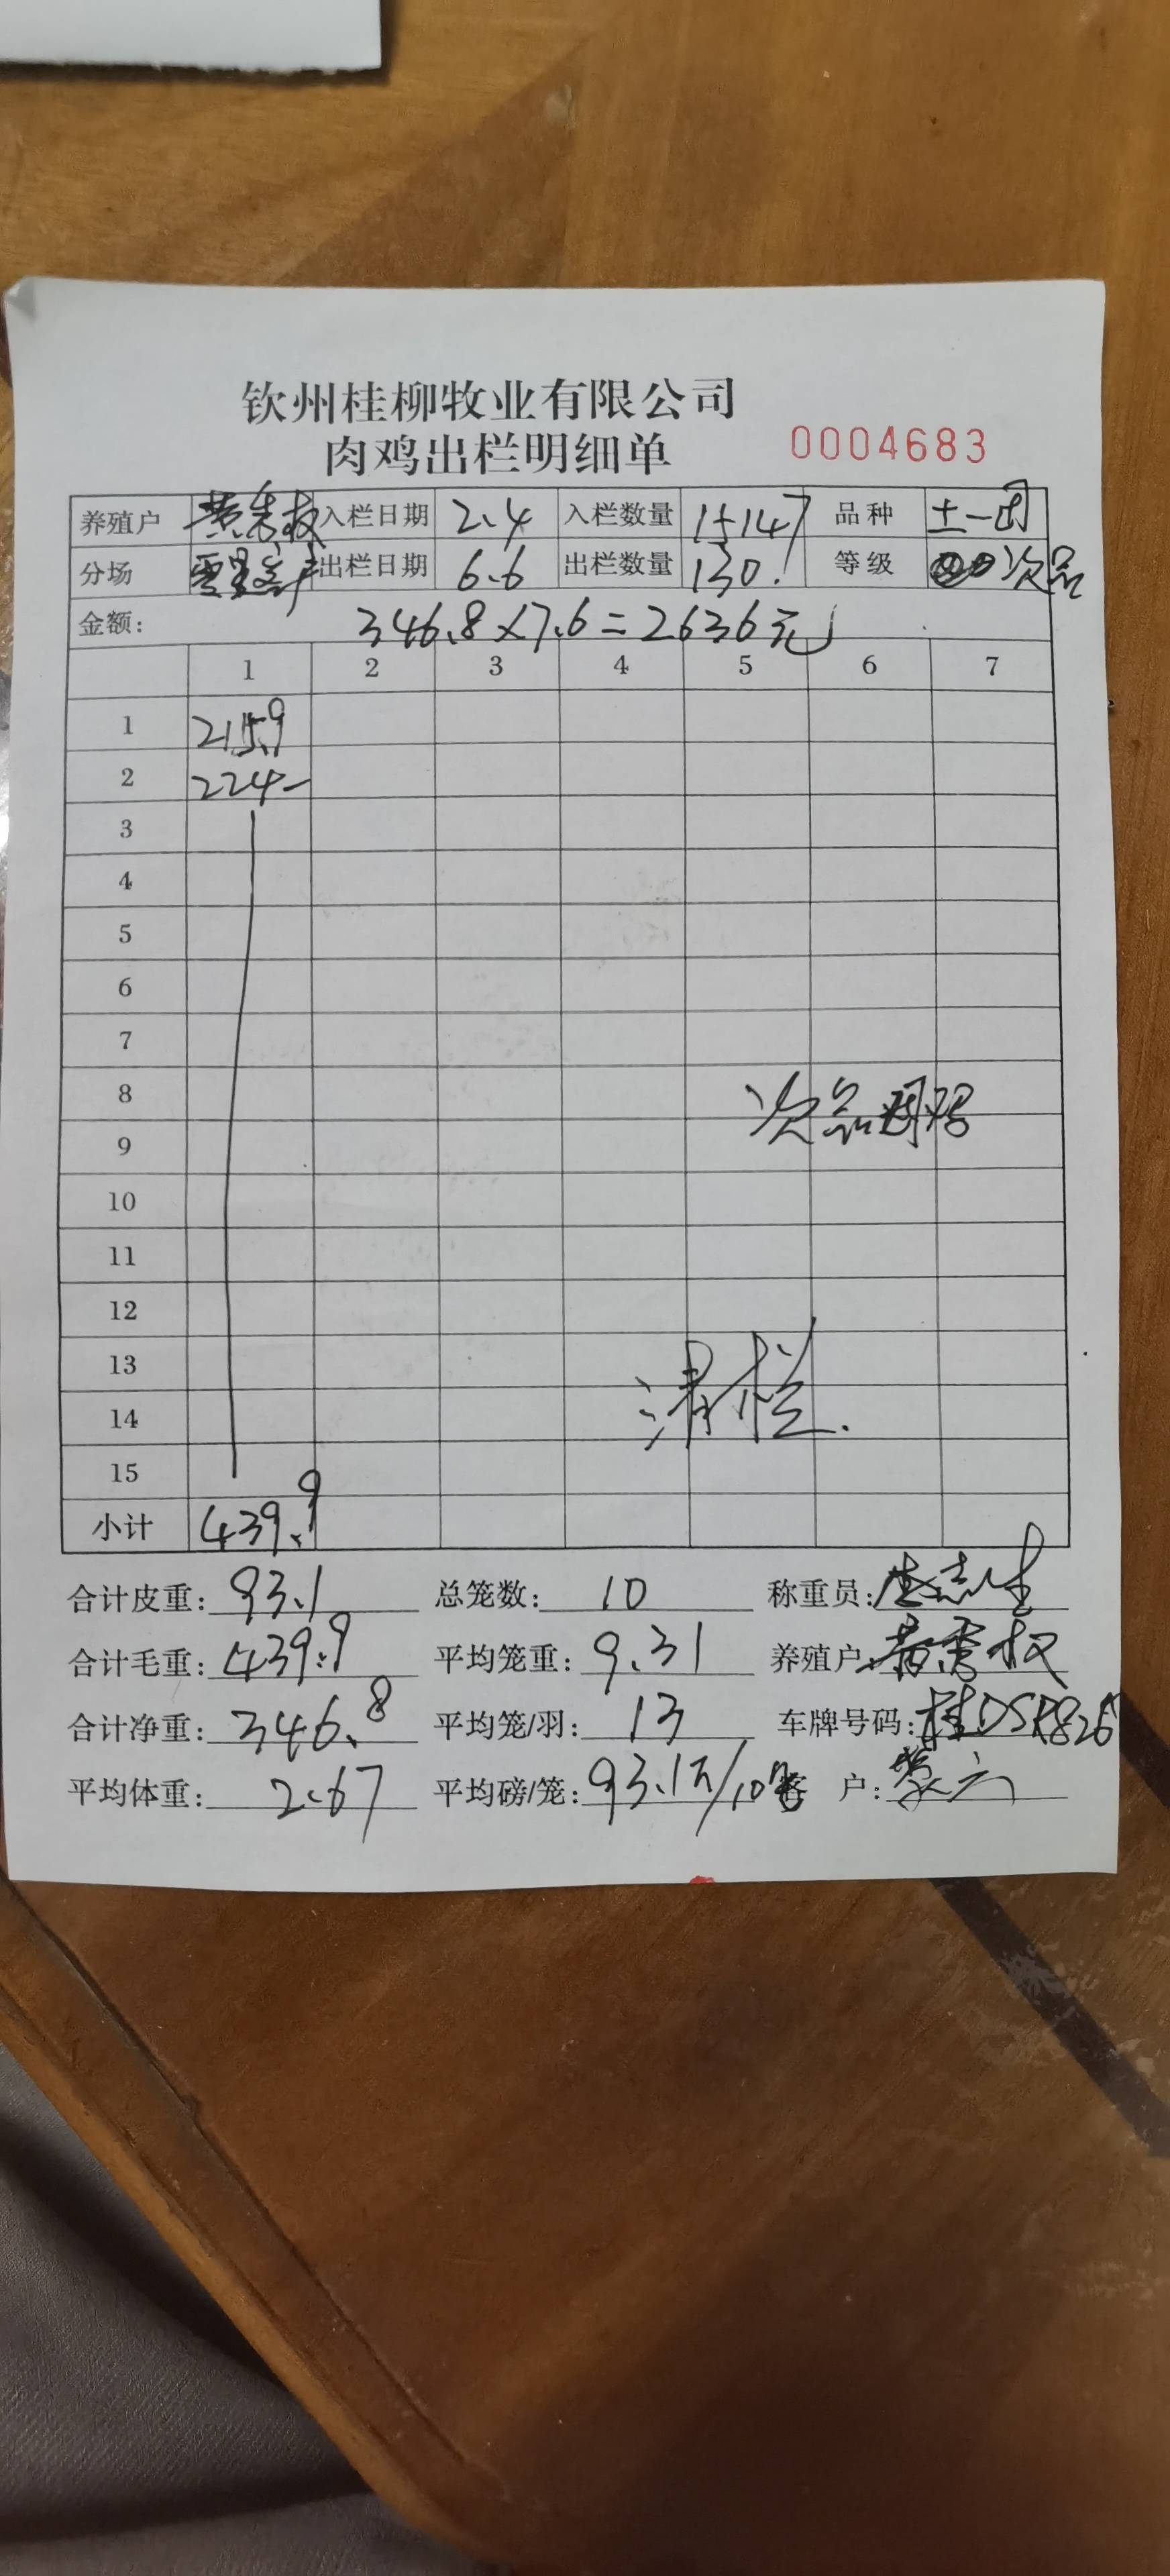 钦州桂柳牧业有限公司
肉鸡出栏明细单 0004683
养殖户 入栏日期 2.4 入栏数量 15147 品种 土一
分场 出栏日期 6.6 出栏数量 130 等级 次品
金额: 346.8×7.6=2636元
1 2 3 4 5 6 7
1 215.9
2 224-
3
4
5
6
7
8
次品
9
10
11
12
13
清栏.
14
15
小计 439.9
合计皮重: 93.1 总笼数: 10 称重员:
合计毛重: 439.9 平均笼重: 9.31 养殖户:
合计净重: 346.8 平均笼/羽: 13 车牌号码:
平均体重: 2.67 平均磅/笼: 93.1 户: